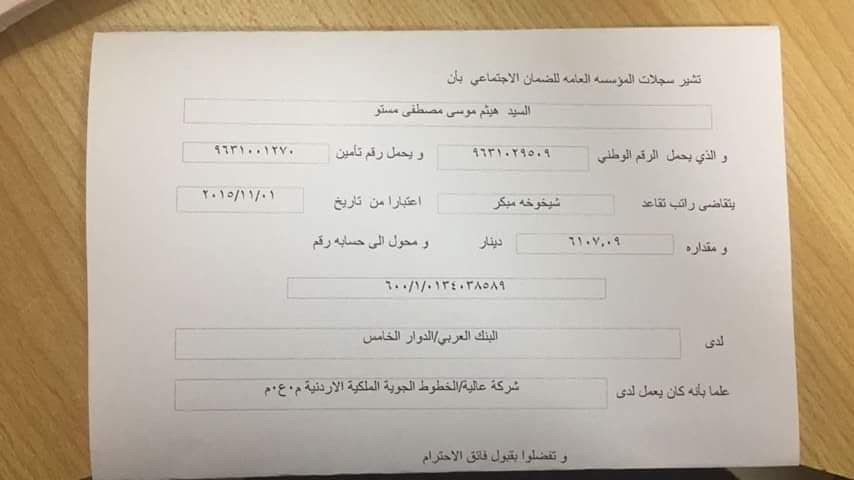 تشير سجلات المؤسسه العامه للضمان الاجتماعي بأن
السيد هيثم موسى مصطفى مستو
و الذي يحمل الرقم الوطني ٩٦٣١٠٢٩٥٠٩ و يحمل رقم تأمين ٩٦٣١٠٠١٢٧٠
يتقاضى راتب تقاعد شيخوخه مبكر اعتبارا من تاريخ ٢٠١٥/١١/٠١
و مقداره ٦١٠٧,٠٩ دينار و محول الى حسابه رقم
٦٠٠/١/٠١٣٤٠٣٨٥٨٩
لدى البنك العربي/الدوار الخامس
علما بأنه كان يعمل لدى شركة عالية/الخطوط الجوية الملكية الاردنية م٠ع٠م
و تفضلوا بقبول فائق الاحترام